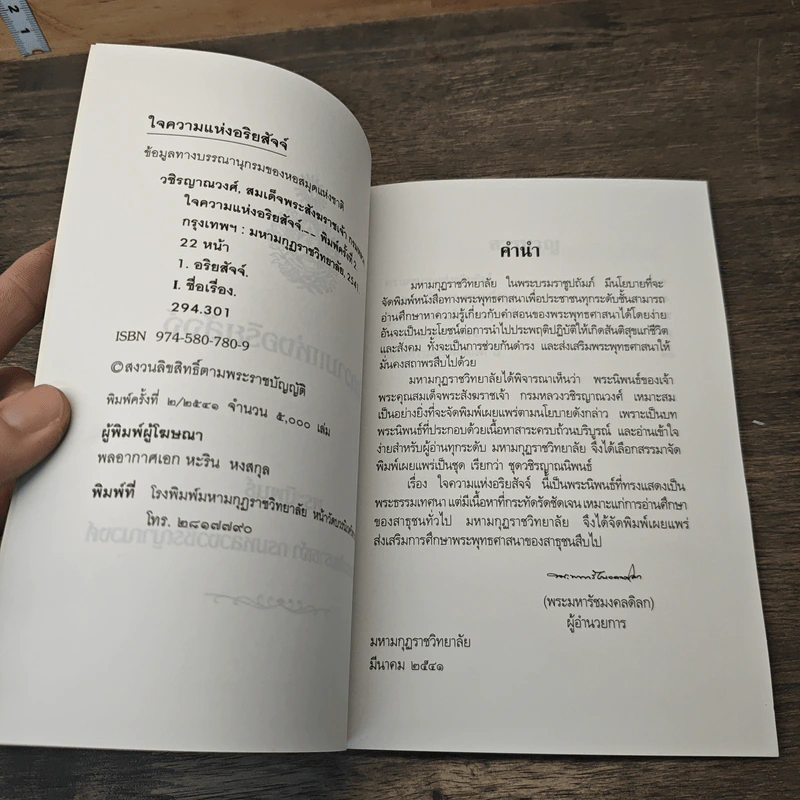 ใจความแห่งอริยสัจจ์
ข้อมูลทางบรรณานุกรมของหอสมุดแห่งชาติ
วชิรญาณวงศ์, สมเด็จพระสังฆราชเจ้า
ใจความแห่งอริยสัจจ์.-- พิมพ์ครั้งที่ 2.
กรุงเทพฯ : มหามกุฏราชวิทยาลัย, 2541
22 หน้า
1. อริยสัจจ์.
I. ชื่อเรื่อง.
294.301
ISBN 974-580-780-9
©สงวนลิขสิทธิ์ตามพระราชบัญญัติ
พิมพ์ครั้งที่ ๒/๒๕๔๑ จำนวน ๕,๐๐๐ เล่ม
ผู้พิมพ์ผู้โฆษณา
พลอากาศเอก หะริน หงสกุล
พิมพ์ที่ โรงพิมพ์มหามกุฏราชวิทยาลัย หน้าวัดบวรนิเวศวิหาร
โทร. ๒๘๑๗๗๙๐
คำนำ
มหามกุฏราชวิทยาลัย ในพระบรมราชูปถัมภ์ มีนโยบายที่จะ
จัดพิมพ์หนังสือทางพระพุทธศาสนาเพื่อประชาชนทุกระดับชั้นสามารถ
อ่านศึกษาหาความรู้เกี่ยวกับคำสอนของพระพุทธศาสนาได้โดยง่าย
อันจะเป็นประโยชน์ต่อการนำไปประพฤติปฏิบัติให้เกิดสันติสุขแก่ชีวิต
และสังคม ทั้งจะเป็นการช่วยกันดำรง และส่งเสริมพระพุทธศาสนาให้
มั่นคงสถาพรสืบไปด้วย
มหามกุฏราชวิทยาลัยได้พิจารณาเห็นว่า พระนิพนธ์ของเจ้า
พระคุณสมเด็จพระสังฆราชเจ้า กรมหลวงวชิรญาณวงศ์ เหมาะสม
เป็นอย่างยิ่งที่จะจัดพิมพ์เผยแพร่ตามนโยบายดังกล่าว เพราะเป็นบท
พระนิพนธ์ที่ประกอบด้วยเนื้อหาสาระครบถ้วนบริบูรณ์ และอ่านเข้าใจ
ง่ายสำหรับผู้อ่านทุกระดับ มหามกุฏราชวิทยาลัย จึงได้เลือกสรรมาจัด
พิมพ์เผยแพร่เป็นชุด เรียกว่า ชุดวชิรญาณนิพนธ์
เรื่อง ใจความแห่งอริยสัจจ์ นี้เป็นพระนิพนธ์ที่ทรงแสดงเป็น
พระธรรมเทศนา แต่มีเนื้อหาที่กระทัดรัดชัดเจน เหมาะแก่การอ่านศึกษา
ของสาธุชนทั่วไป มหามกุฏราชวิทยาลัย จึงได้จัดพิมพ์เผยแพร่
ส่งเสริมการศึกษาพระพุทธศาสนาของสาธุชนสืบไป
(พระมหารัชมงคลดิลก)
ผู้อำนวยการ
มหามกุฏราชวิทยาลัย
มีนาคม ๒๕๔๑